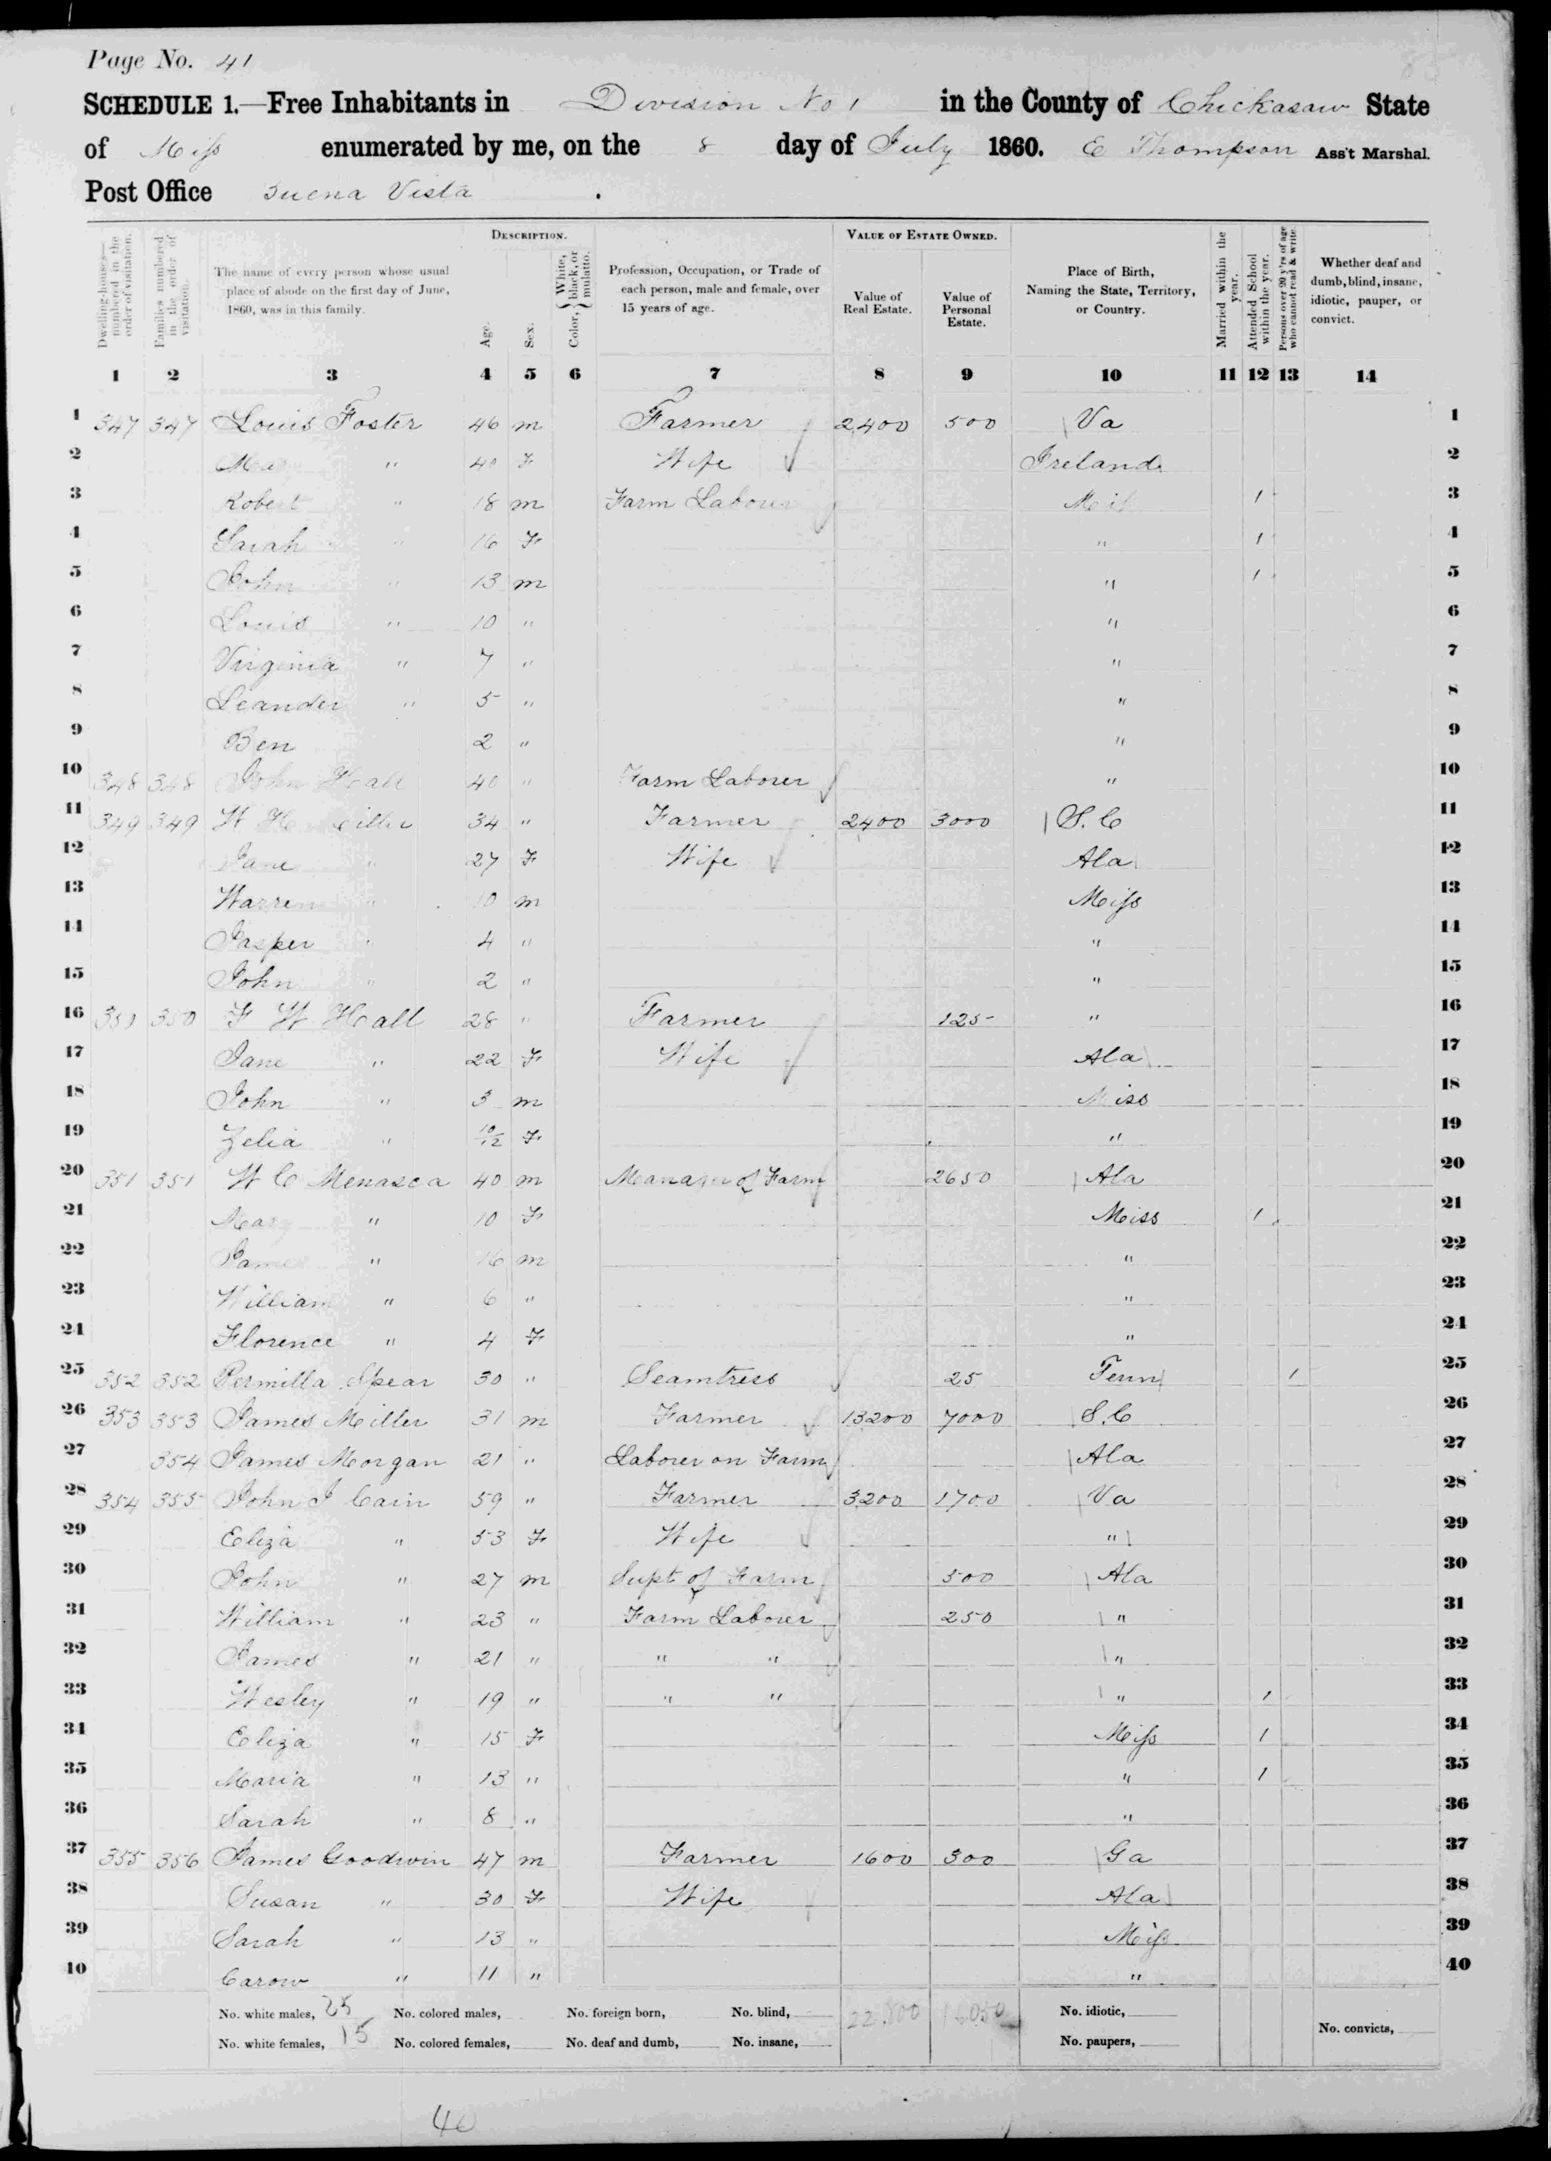 Page No. 41
85
SCHEDULE 1.—Free Inhabitants in Division No 1 in the County of Chickasaw State
of Miss enumerated by me, on the 8 day of July 1860. E Thompson Ass't Marshal.
Post Office Buena Vista
Dwelling-houses—numbered in the order of visitation. Families numbered in the order of visitation. The name of every person whose usual place of abode on the first day of June, 1860, was in this family. DESCRIPTION. Age. Sex. Color, { White, black, or mulatto. Profession, Occupation, or Trade of each person, male and female, over 15 years of age. VALUE OF ESTATE OWNED. Value of Real Estate. Value of Personal Estate. Place of Birth, Naming the State, Territory, or Country. Married within the year. Attended School within the year. Persons over 20 y'rs of age who cannot read & write. Whether deaf and dumb, blind, insane, idiotic, pauper, or convict.
1 2 3 4 5 6 7 8 9 10 11 12 13 14
1 347 347 Louis Foster 46 m Farmer 2400 500 Va 1
2 " 40 F Wife Ireland 2
3 Robert " 18 m Farm 1 3
4 Sarah " 16 F " 1 4
5 John " 13 m " 1 5
6 Louis " 10 " " 6
7 Virginia " 7 " " 7
8 Leander " 5 " " 8
9 Ben 2 " " 9
10 348 348 John Hall 40 " Farm Laborer " 10
11 349 349 W H 34 " Farmer 2400 3000 S.C 11
12 Jane " 27 F Wife Ala 12
13 Warren " 10 m Miss 13
14 Jasper " 4 " " 14
15 John " 2 " " 15
16 350 350 F W Hall 28 " Farmer 125 " 16
17 Jane " 22 F Wife Ala 17
18 John " 3 m Miss 18
19 Zelia " 10/12 F " 19
20 351 351 W C Menasca 40 m of Farm 2650 Ala 20
21 Mary " 10 F Miss 1 21
22 James " 16 m " 22
23 William " 6 " " 23
24 Florence " 4 F " 24
25 352 352 Permilla Spear 30 " Seamtress 25 Tenn 1 25
26 353 353 James Miller 31 m Farmer 13200 7000 S.C 26
27 354 James Morgan 21 " Laborer on Farm Ala 27
28 354 355 John J Cain 59 " Farmer 3200 1700 Va 28
29 Eliza " 53 F Wife " 29
30 John " 27 m Supt of Farm 500 Ala 30
31 William " 23 " Farm Laborer 250 " 31
32 James " 21 " " " " 32
33 Wesley " 19 " " " " 1 33
34 Eliza " 15 F Miss 1 34
35 Maria " 13 " " 1 35
36 Sarah " 8 " " 36
37 355 356 James Goodwin 47 m Farmer 1600 300 Ga 37
38 Susan " 30 F Wife Ala 38
39 Sarah " 13 " Miss 39
40 Carow " 11 " " 40
No. white males, 25 No. colored males, No. foreign born, No. blind, 22,800 16050 No. idiotic,
No. white females, 15 No. colored females, No. deaf and dumb, No. insane, No. paupers, No. convicts,
40